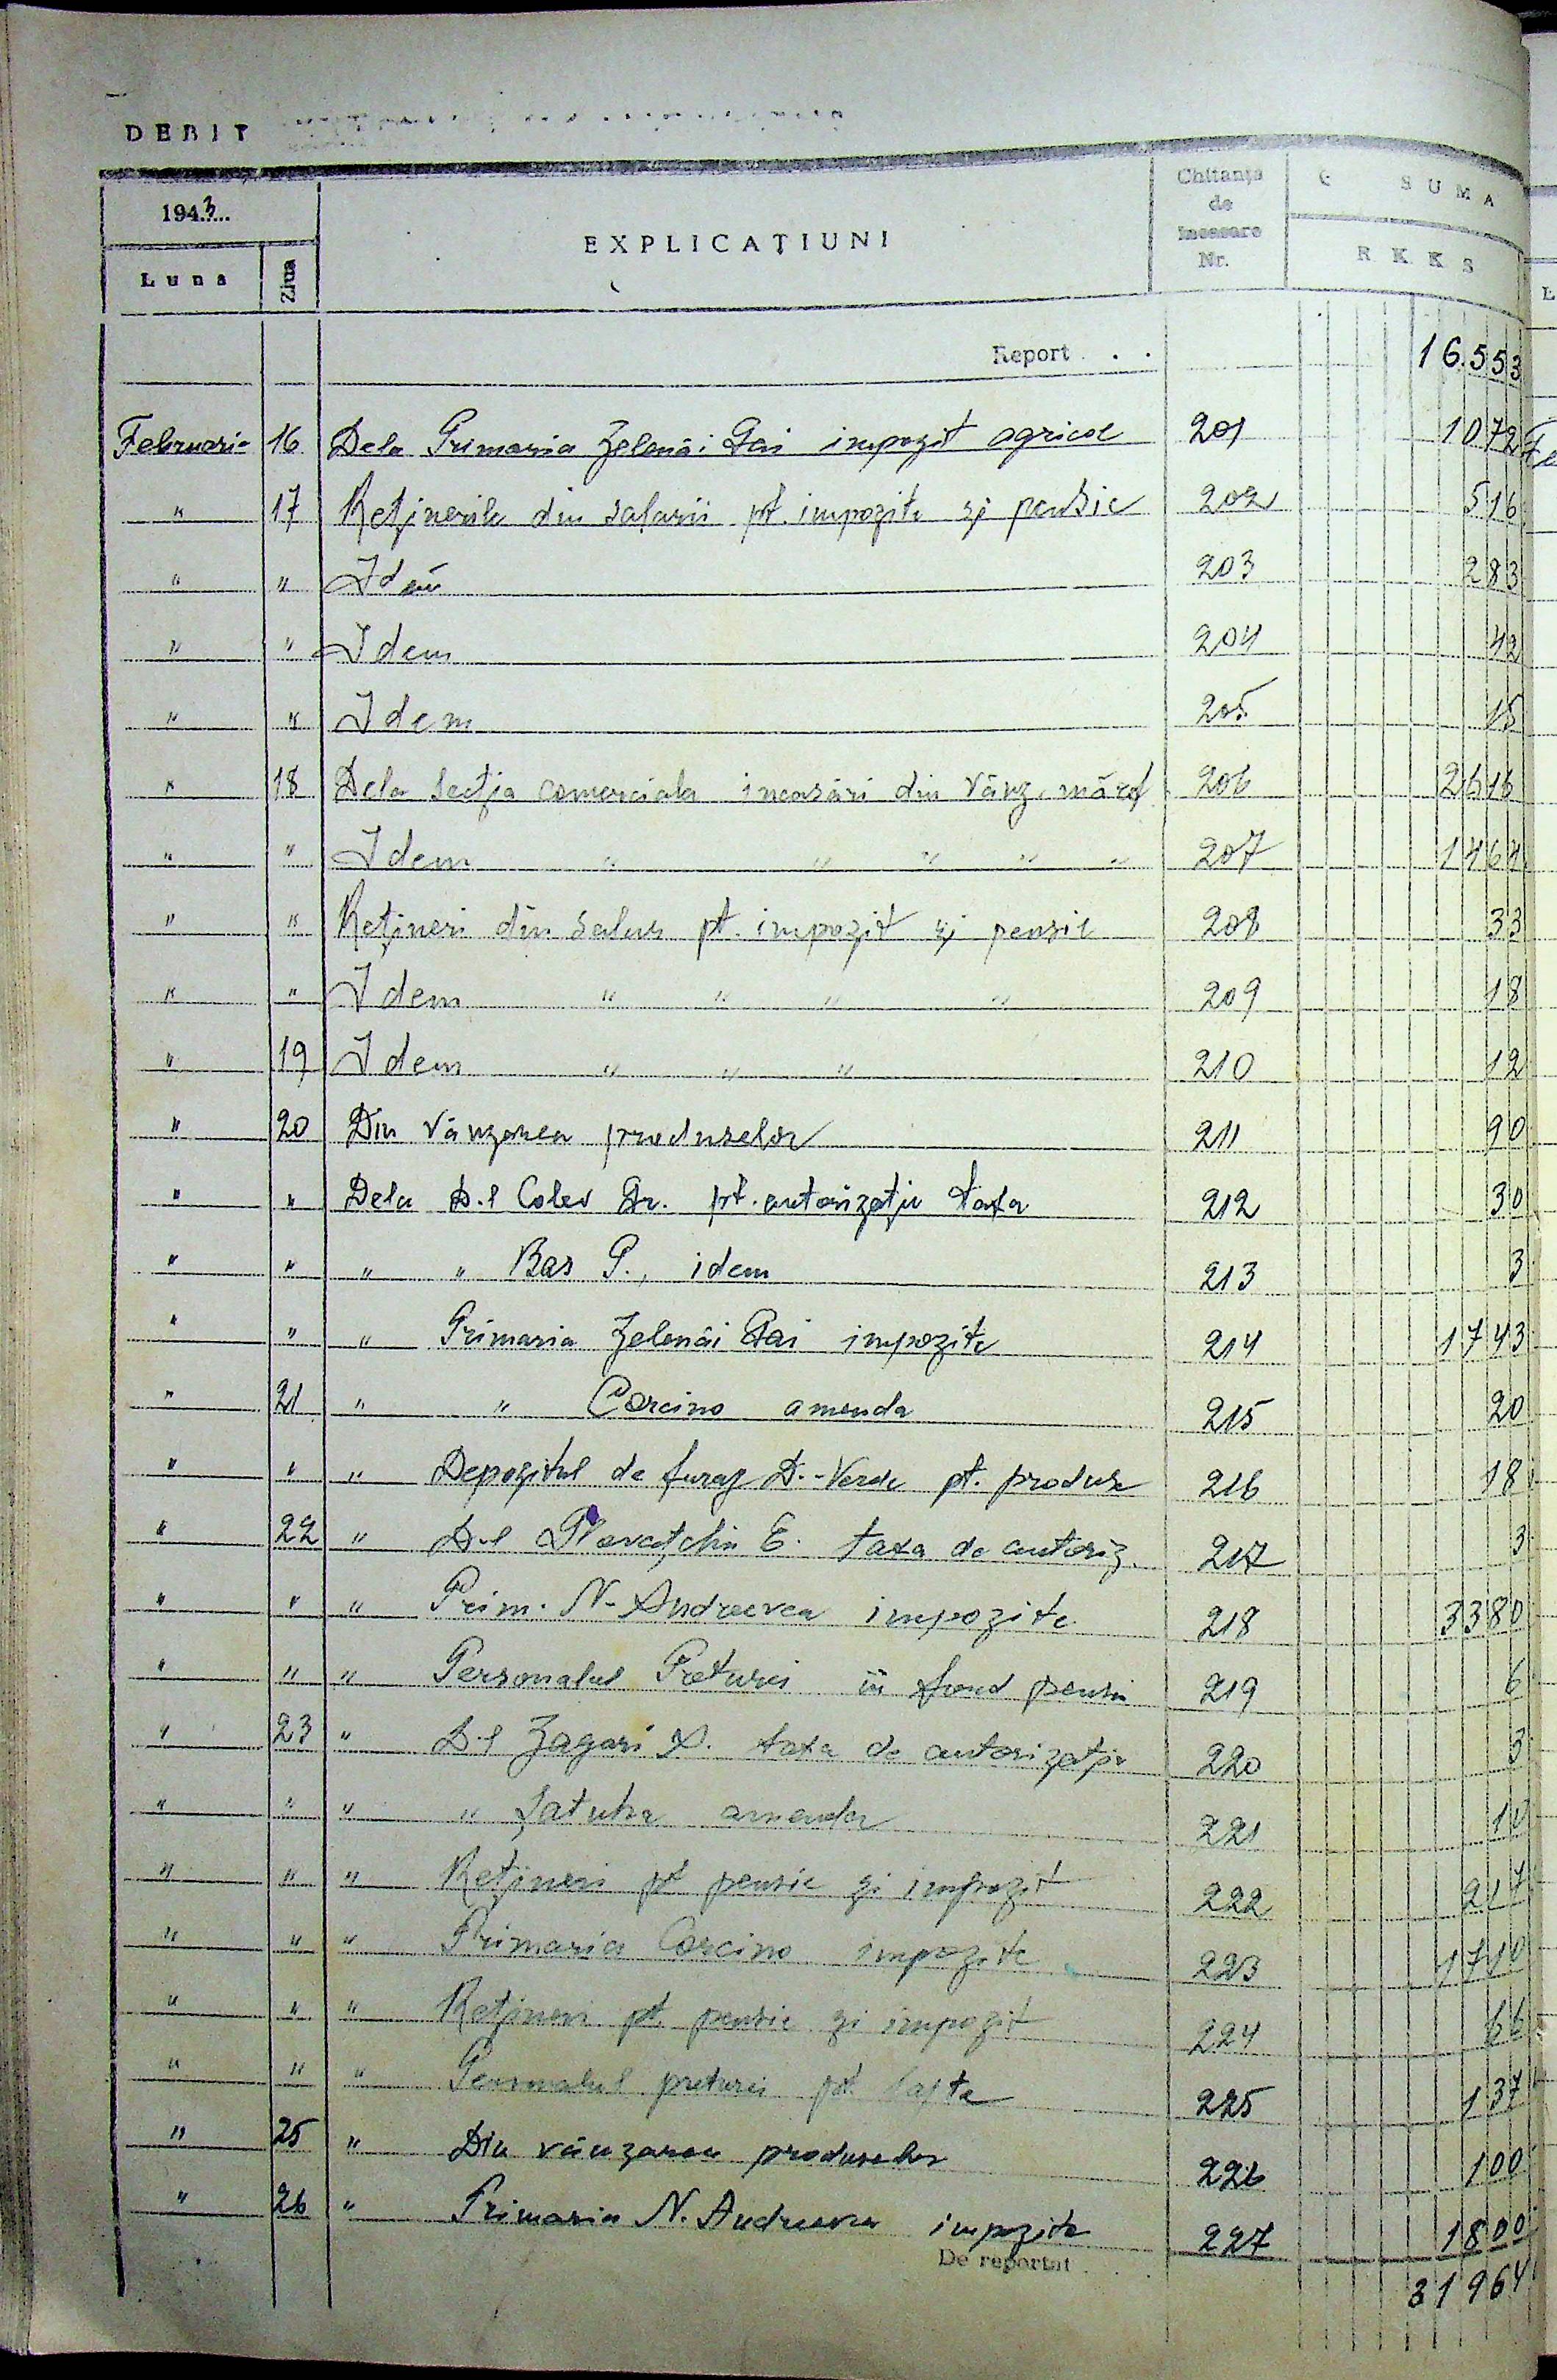 DEBIT
1943
Luna Ziua EXPLICAȚIUNI Chitanța de încasare Nr. SUMA RKKS
Report . . 16.553
Februarie 16 Dela Primaria Zelenâi Gai impozit agricol 201 1072
" 17 Reținerile din salarii pt. impozite și pensie 202 516
" " Idem 203 283
" " Idem 204 42
" " Idem 205 15
" 18 Dela Secția comerciala incasări din vânz. mărf 206 2616
" " Idem " " " " " 207 1464
" " Rețineri din salar pt. impozit și pensie 208 33
" " Idem " " " " 209 18
" 19 Idem " " " 210 12
" 20 Din vânzarea produselor 211 90
" " Dela D-l Colev Gr. pt. autorizație taxa 212 30
" " " " Bas P., idem 213 3
" " " Primaria Zelenâi Gai impozite 214 1743
" 21 " " Corcino amenda 215 20
" " " Depozitul de furaj D.-Verde pt. produse 216 18
" 22 " D-l E. taxa de autoriz. 217 3
" " " Prim. N-Andreevca impozite 218 3380
" " " Personalul Preturii fond pensii 219 6
" 23 " D-l Zagari taxa de autorizație 220 3
" " " " amenda 221 10
" " " Rețineri pt pensie și impozit 222 217
" " " Primaria Corcino impozite 223 1710
" " " Rețineri pt. pensie și impozit 224 66
" " " Personalul preturii pt. lapte 225 137
" 25 " Din vânzarea produselor 226 100
" 26 " Primaria N. Andreevca impozite 227 1800
De reportat . . 31964